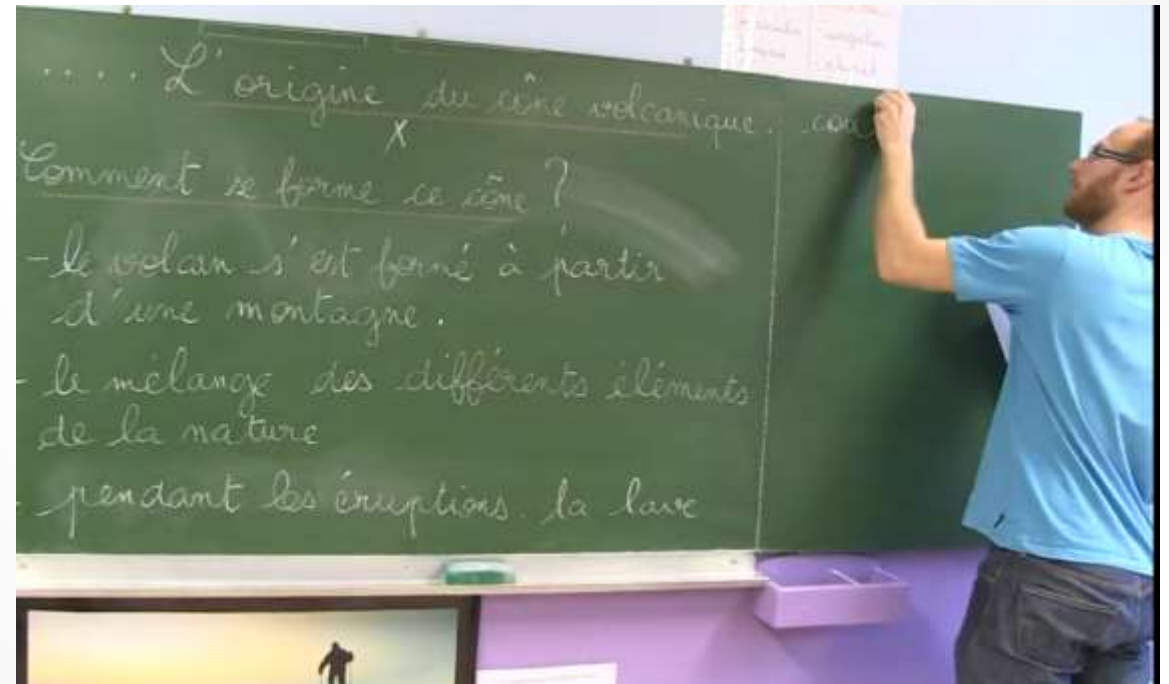 .... L'origine du cône volcanique.
X
Comment se forme ce cône ?
- le volcan s'est formé à partir
d'une montagne.
- le mélange des différents éléments
de la nature
- pendant les éruptions. la lave
cou